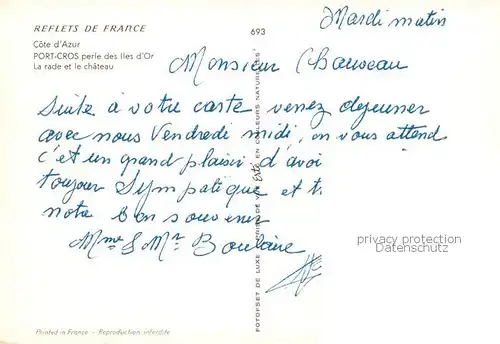 REFLETS DE FRANCE
693
Côte d'Azur
PORT-CROS perle des Iles d'Or
La rade et le château
Mardi matin
Monsieur Chauveau
Suite à votre carte venez dejeuner
avec nous Vendredi midi, on vous attend
c'et un grand plaisir d'avoi
toujour Sympatique et t
notre bon souvenir
Mme & Mr Boulaire
privacy protection
Datenschutz
Printed in France - Reproduction interdite